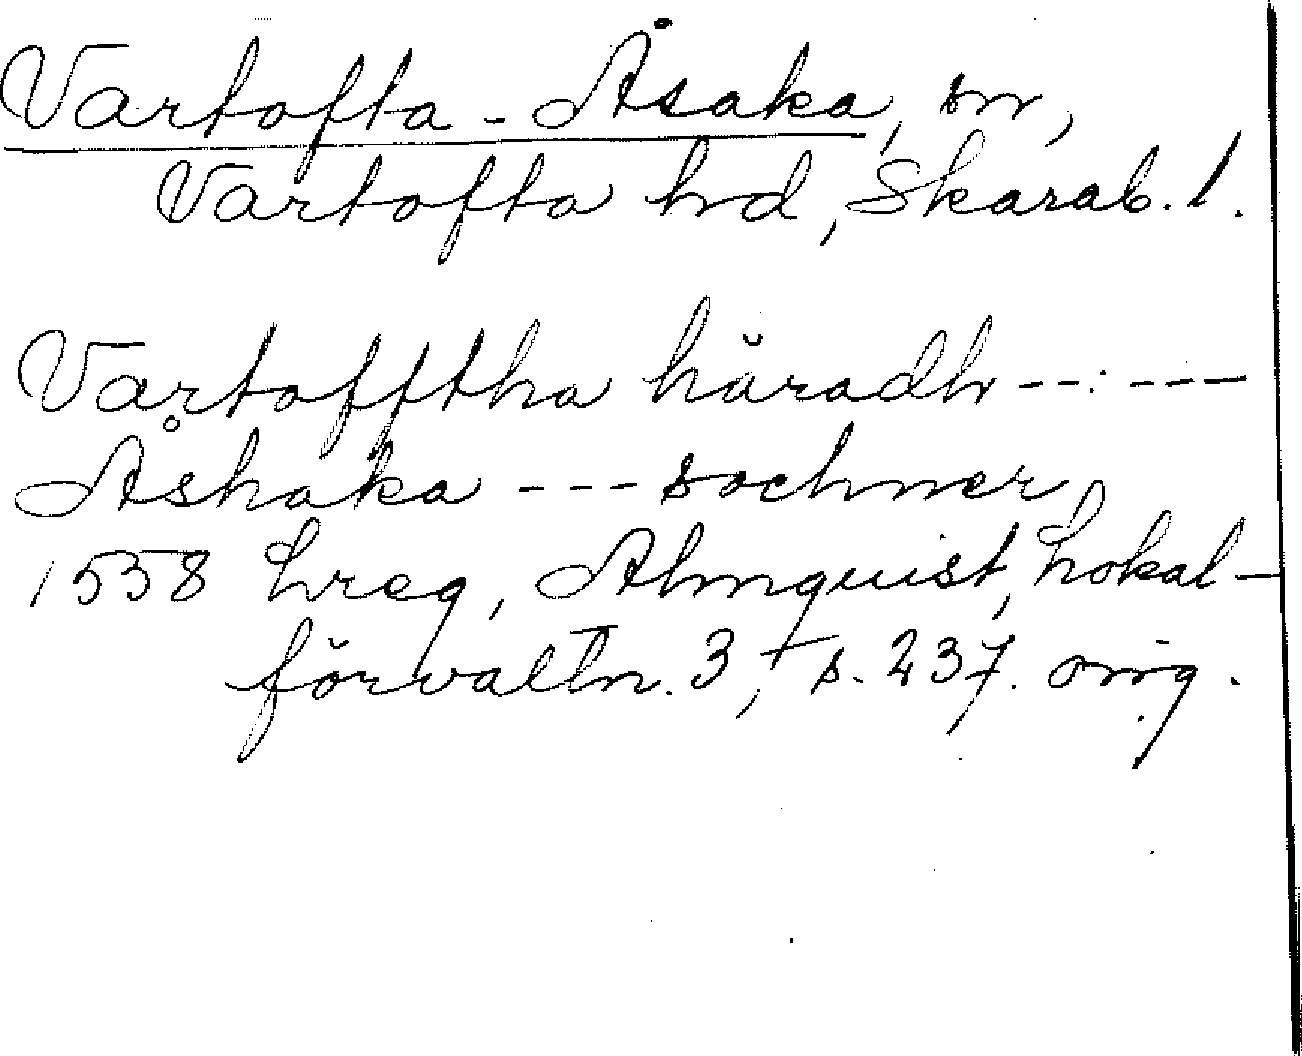 Vartofta-Åsaka, sn,
Vartofta hd, Skarab. l.
Vartofftha häradh --:---
Åshaka --- sochner,
1558 Lreg, Almquist, Lokal-
förvaltn. 3, s. 237. orig.